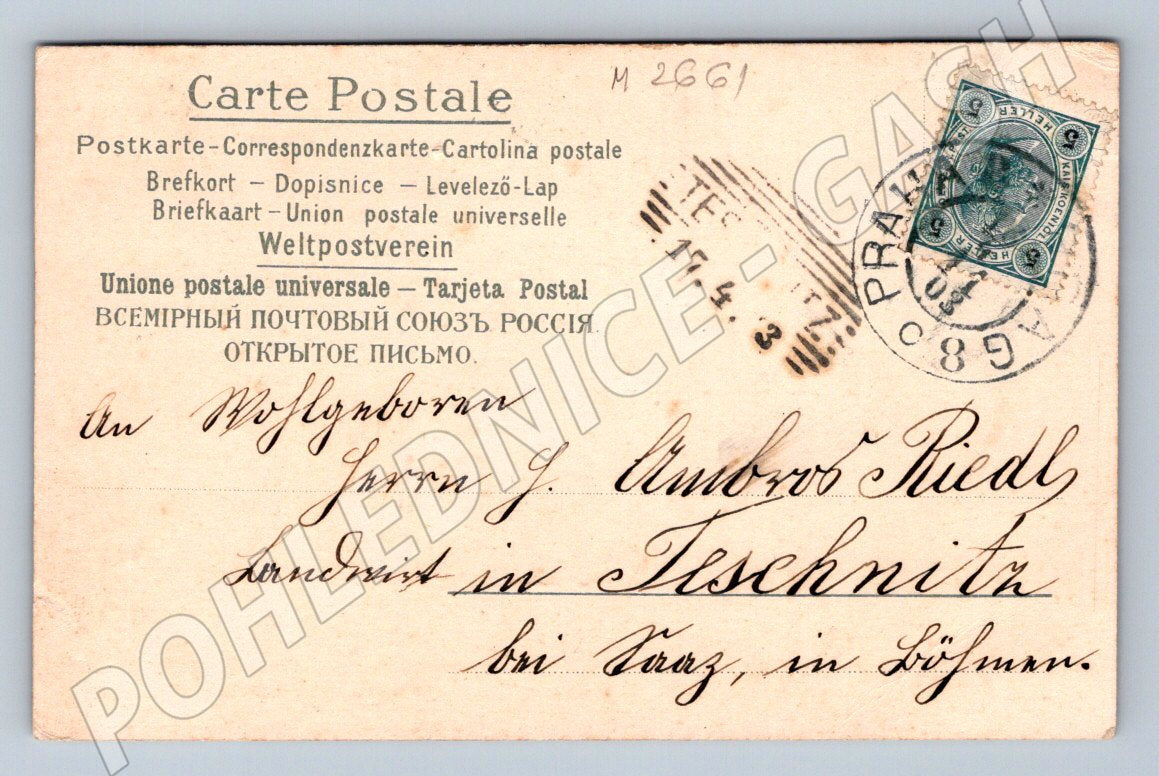 M 2661
Carte Postale
Postkarte-Correspondenzkarte-Cartolina postale
Brefkort – Dopisnice – Levelező-Lap
Briefkaart – Union postale universelle
Weltpostverein
Unione postale universale – Tarjeta Postal
ВСЕМІРНЫЙ ПОЧТОВЫЙ СОЮЗЪ РОССІЯ.
ОТКРЫТОЕ ПИСЬМО.
17.4.3
PRAG 8
03
5 HELLER 5
KAIS.KOENIGL.
5 HELLER 5
An Wohlgeboren
Herrn H. Ambros Riedl,
Landwirt in Teschnitz
bei Saaz, in Böhmen.
POHLEDNICE - GASH